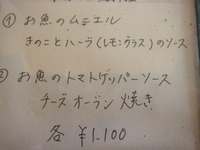 ① お魚のムニエル
きのことハーブ(レモングラス)のソース
② お魚のトマトケッパーソース
チーズオーブン焼き
各 ¥1.100